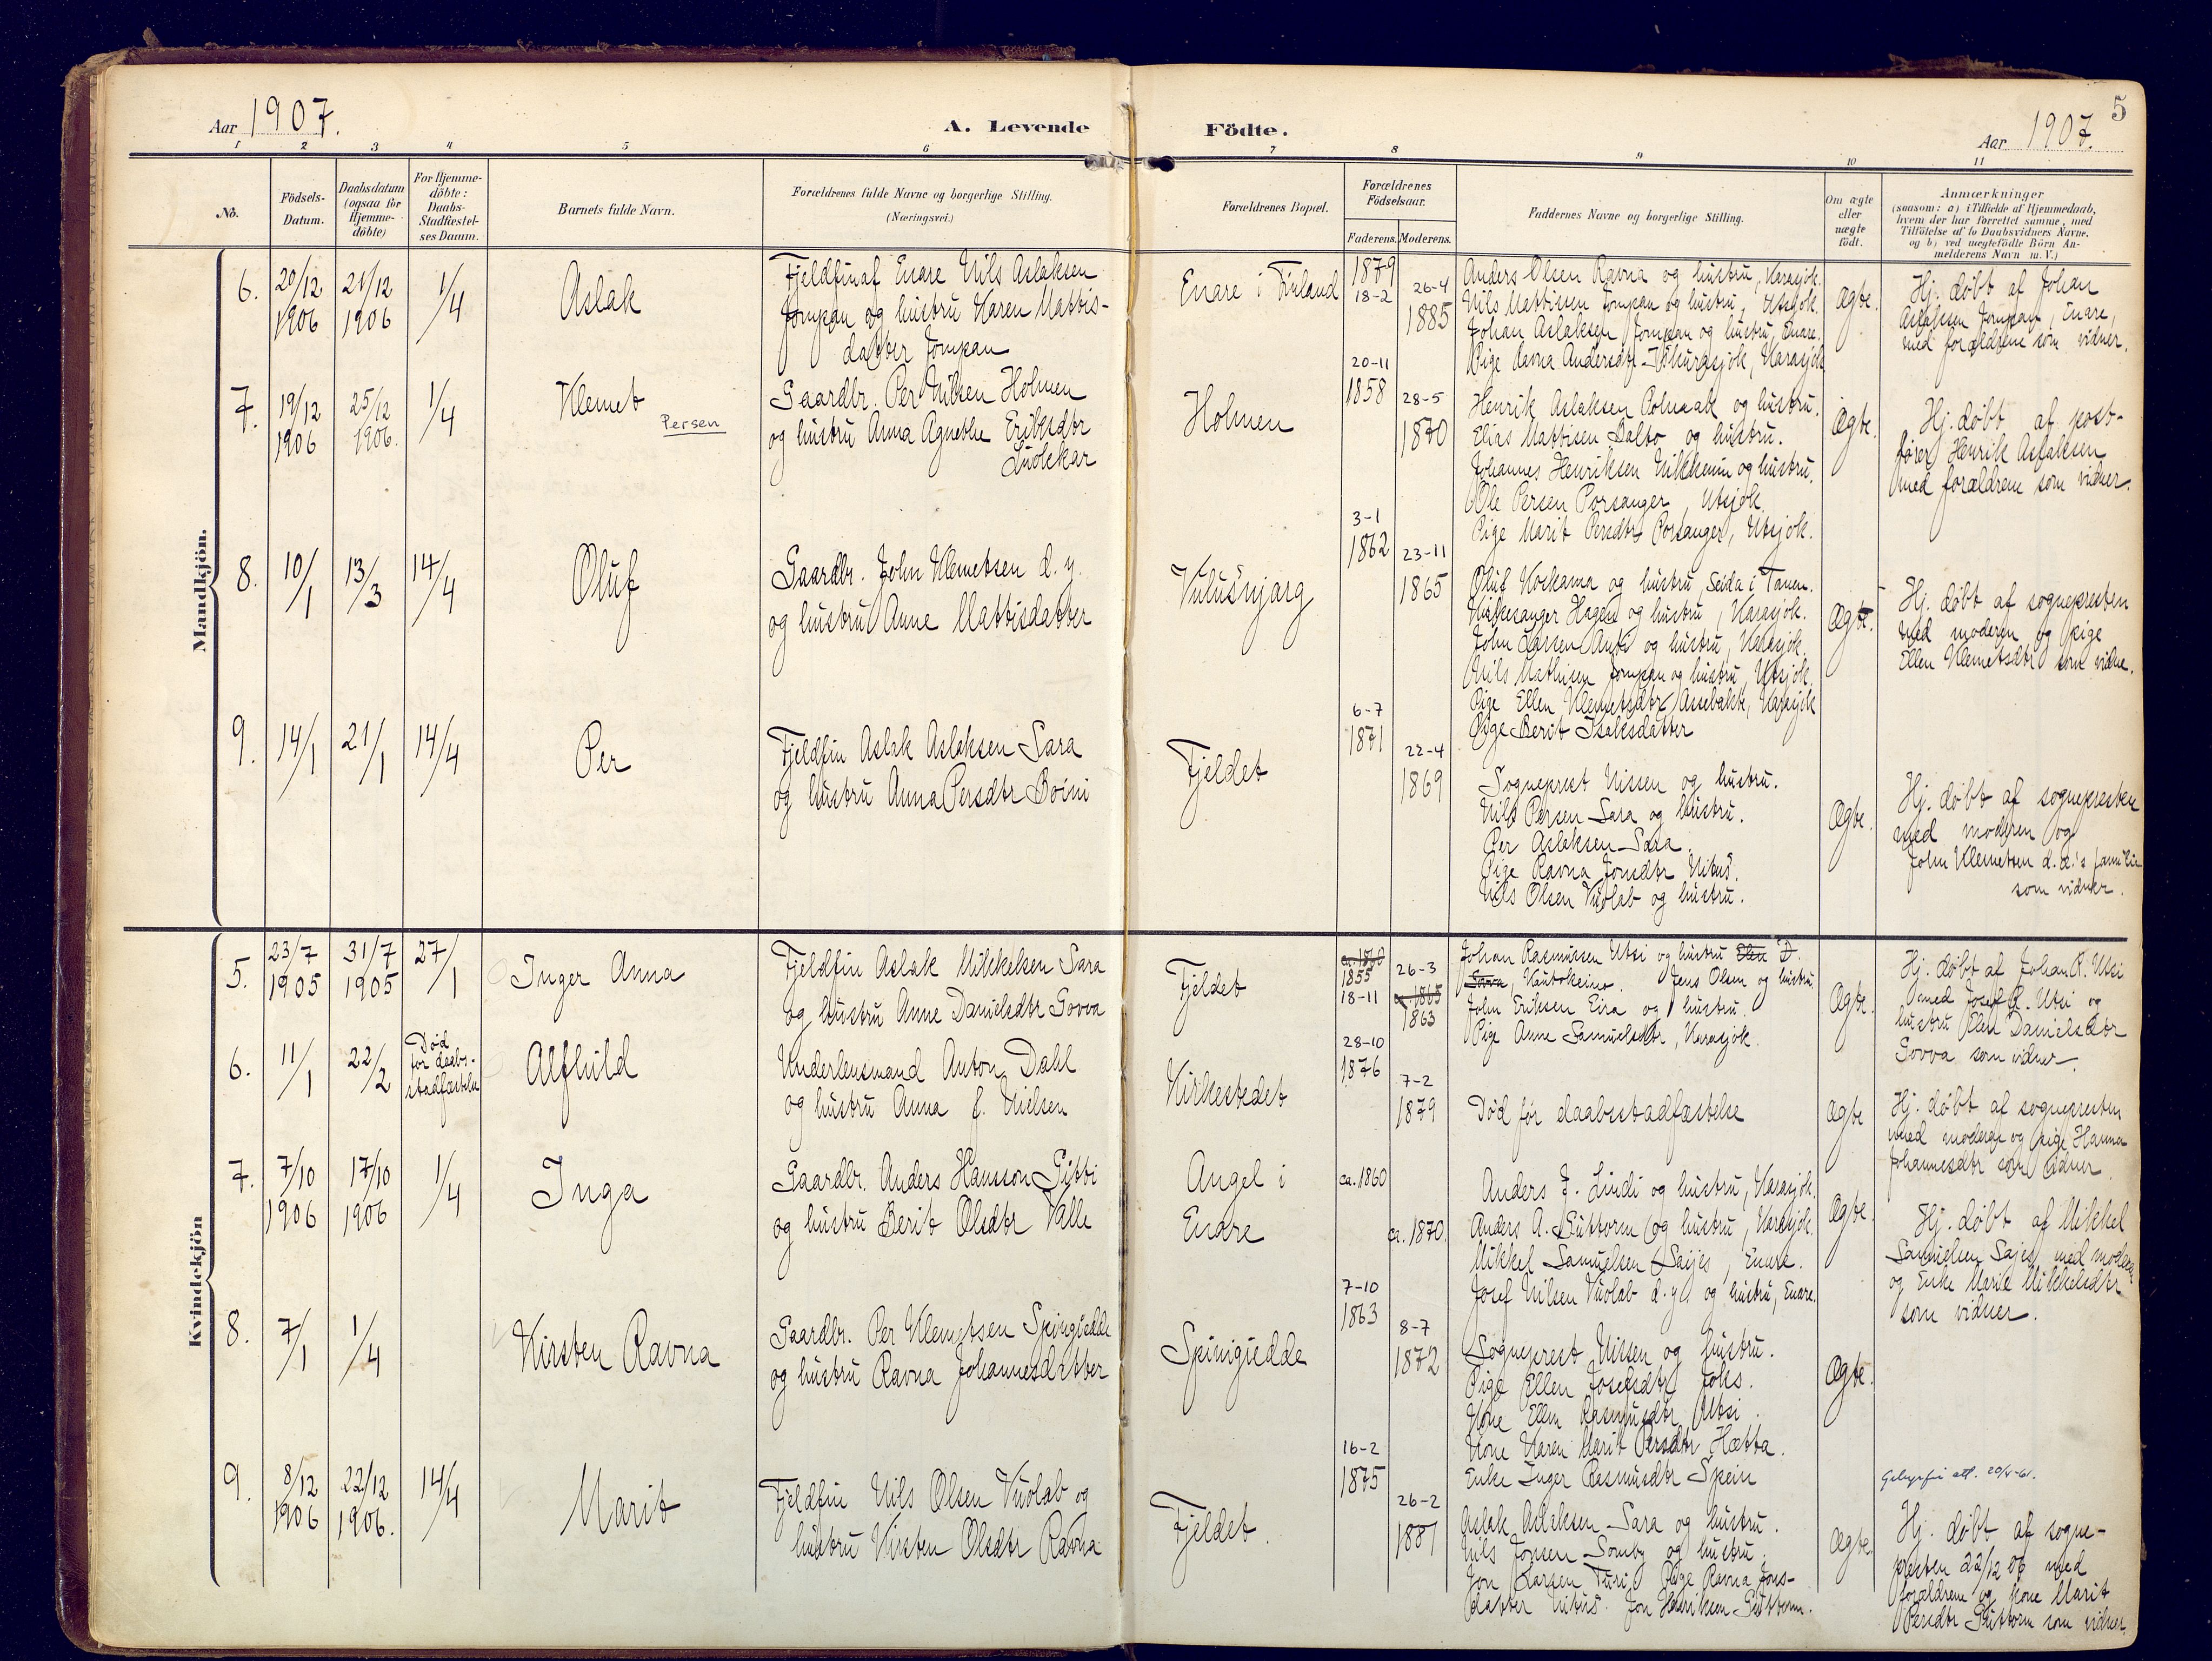 5
Aar 1907.
A. Levende Födte.
Aar 1907.
1 2 3 4 5 6 7 8 9 10 11
No.
Födsels-Datum.
Daabsdatum (ogsaa for Hjemme-döbte)
For Hjemme-döbte: Daabs-Stadfæstel-ses Datum.
Barnets fulde Navn.
Forældrenes fulde Navne og borgerlige Stilling.
(Næringsvei.)
Forældrenes Bopæl.
Forældrenes Födselsaar.
Faderens. Moderens.
Faddernes Navne og borgerlige Stilling.
Om ægte eller uægte födt.
Anmærkninger
(saasom: a) i Tilfælde af Hjemmedaab,
hvem der har forrettet samme, med
Tilföielse af to Daabsvidners Navne,
og b) ved uægtefödte Börn An-
melderens Navn m. V.)
Mandkjön.
6.
20/12 1906
21/12 1906
1/4
Aslak
Fjeldfin af Enare Nils Aslaksen
Jompan og hustru Karen Mattis-
datter Jompan
Enare i Finland
1879
18-2
26-4
1885
Anders Olsen Ravna og hustru, Karasjok.
Nils Mattisen Jompan og hustru, Utsjok.
Johan Aslaksen Jompan og hustru, Enare.
Pige Ravna Andersdtr, Karasjok
Ægte.
Hj. døbt af Johan
Aslaksen Jompan, Enare,
med forældrene som vidner.
7.
19/12 1906
25/12 1906.
1/4
Klemet
Persen
Gaardbr. Per Nilsen Holmen
og hustru Anna Agnethe Eriksdtr
Luokkar
Holmen
20-11
1858
28-5
1870
Henrik Aslaksen Polmak og hustru.
Elias Mattisen Balto og hustru.
Johannes Henriksen og hustru.
Ole Persen Porsanger, Utsjok.
Pige Marit Persdtr Porsanger, Utsjok.
Ægte.
Hj. døbt af post-
fører Henrik Aslaksen
med forældrene som vidner.
8.
10/1
13/3
14/4
Oluf
Gaardbr. John Klemetsen d. y.
og hustru Anne Mattisdatter
Vulusnjarg
3-1
1862
23-11
1865
Oluf Koskama og hustru, Seida i Tanen.
Kirkesanger Hagen og hustru, Karasjok.
John Larsen Anti og hustru, Karasjok.
Nils Mathisen Jompan og hustru, Utsjok.
Pige Ellen Klemetsdtr Assebakte, Karasjok
Pige Berit Isaksdatter
Ægte.
Hj. døbt af sognepresten
med moderen og pige
Ellen Klemetsdtr som vidne.
9.
14/1
21/1
14/4
Per
Fjeldfin Aslak Aslaksen Sara
og hustru Anna Persdtr Boini
Fjeldet
6-7
1871
22-4
1869
Sogneprest Nissen og hustru.
Nils Persen Sara og hustru.
Per Aslaksen Sara.
Pige Ravna Jonsdtr Nikus.
Nils Olsen Vuolab og hustru.
Ægte.
Hj. døbt af sognepresten
med moderen og
John Klemetsen d. æ.'s familie
som vidner.
Kvindekjön
5.
23/7 1905
31/7 1905
27/1
Inger Anna
Fjeldfin Aslak Mikkelsen Sara
og hustru Anne Danielsdtr Govva
Fjeldet
ca. 1860
1855
18-11
26-3
ca. 1865
1863
Johan Rasmussen Utsi og hustru Elen D.
Sara, Kautokeino. Jens Olsen og hustru
John Eriksen Eira og hustru.
Pige Anne Samuelsdtr, Karasjok.
Ægte.
Hj. døbt af Johan R. Utsi
med Josef R. Utsi og
hustru Elen Danielsdtr
Govva som vidner.
6.
11/1
22/2
Død før daabs-stadfæstelse
Alfhild
Underlensmand Anton Dahl
og hustru Anna f. Nielsen
Kirkestedet
28-10
1876
7-2
1879
Død før daabsstadfæstelse
Ægte
Hj. døbt af sognepresten
med moderen og pige Hanna
Johannesdtr som vidner
7.
7/10 1906
17/10 1906
1/4
Inga
Gaardbr. Anders Hansson Gitti
og hustru Berit Olsdtr Valle
Angel i
Enare
ca. 1860
ca. 1870.
Anders J. Lindi og hustru, Karasjok.
Anders A. Guttorm og hustru, Karasjok.
Mikkel Samuelsen Sajes, Enare.
Josef Nilsen Vuolab d. y. og hustru, Enare.
Ægte.
Hj. døbt af Mikkel
Samuelsen Sajes med moderen
og Enke Marit Mikkelsdtr
som vidner.
8.
7/1
1/4
Kirsten Ravna
Gaardbr. Per Klemetsen Spinigiedde
og hustru Ravna Johannesdatter
Spinigiedde
7-10
1863
8-7
1872
Sogneprest Nissen og hustru.
Pige Ellen Josefsdtr Joks.
Kone Ellen Rasmusdtr Utsi.
Kone Karen Marit Persdtr Hætta.
Enke Inger Rasmusdtr Spein
Ægte.
att. 20/4-61.
9.
8/12 1906
22/12 1906.
14/4
Marit
Fjeldfin Nils Olsen Vuolab og
hustru Kirsten Olsdtr Ravna
Fjeldet.
16-2
1875
26-2
1881
Aslak Aslaksen Sara og hustru.
Nils Jonsen Somby og hustru.
Jon Larsen Turi. Pige Ravna Jons-
datter Nikus. Jon Henriksen Guttorm.
Ægte.
Hj. døbt af sogne-
presten 22/12 06 med
forældrene og kone Marit
Persdtr Guttorm som vidner.